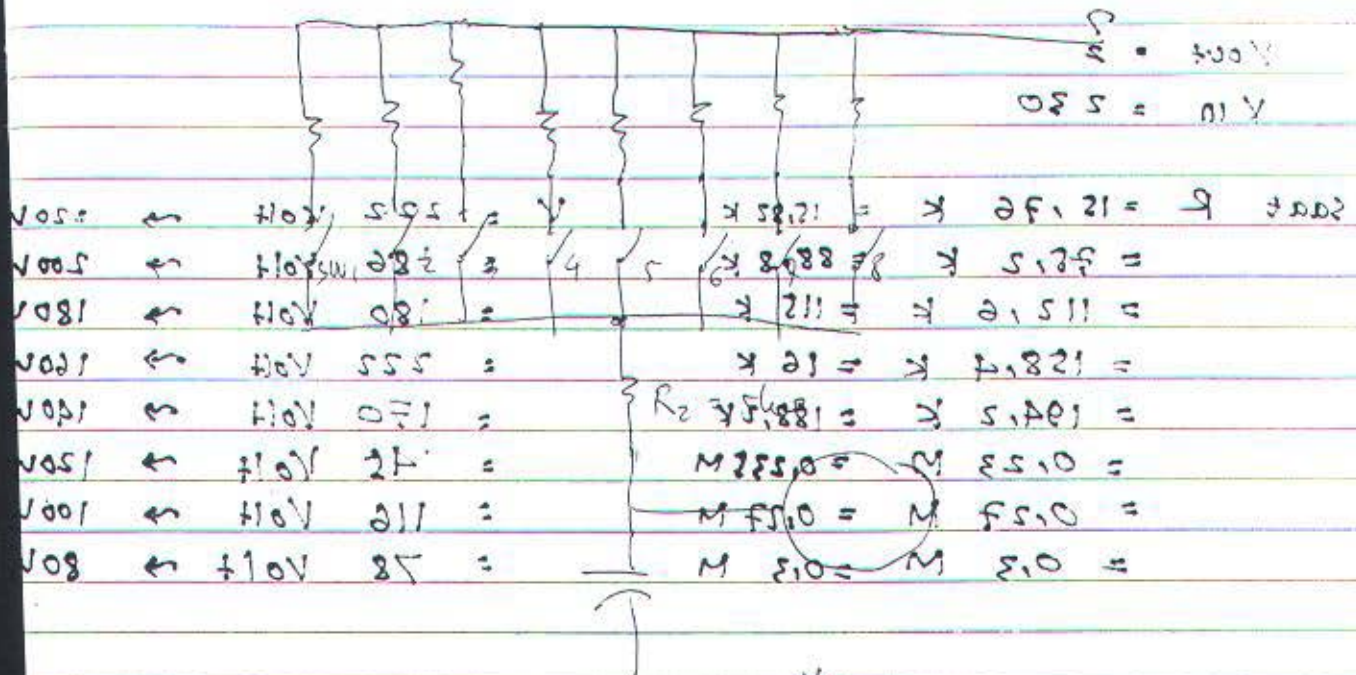 Vout =
Vin = 230
saat R = 15,76 K = 15,82 K = Volt → 220V
= K = K = Volt → 200V
= 112,6 K = 112 K = 180 Volt → 180V
= 158,4 K = 16 K = 222 Volt → 160V
= 194,2 K = 188,5 K = 170 Volt → 140V
= 0,23 M = 0,232 M = Volt → 120V
= 0,27 M = 0,27 M = 116 Volt → 100V
= 0,3 M = 0,3 M = 78 Volt → 80V
SW1 4 5 6 8
R2